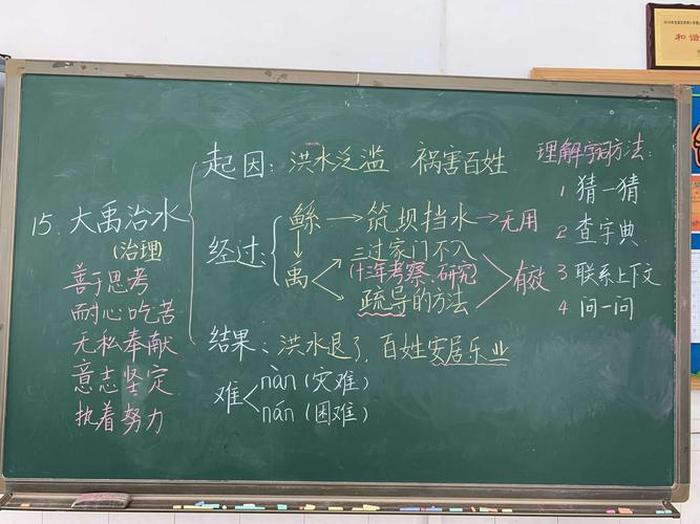 15. 大禹治水
(治理)
善于思考
耐心吃苦
无私奉献
意志坚定
执着努力
起因: 洪水泛滥 祸害百姓
经过: 鲧→筑坝挡水→无用
↓
禹
三过家门不入
(十三年考察、研究)
疏导的方法
有效
结果: 洪水退了, 百姓安居乐业
难
nàn (灾难)
nán (困难)
理解字词方法:
1 猜一猜
2 查字典
3 联系上下文
4 问一问
和谐